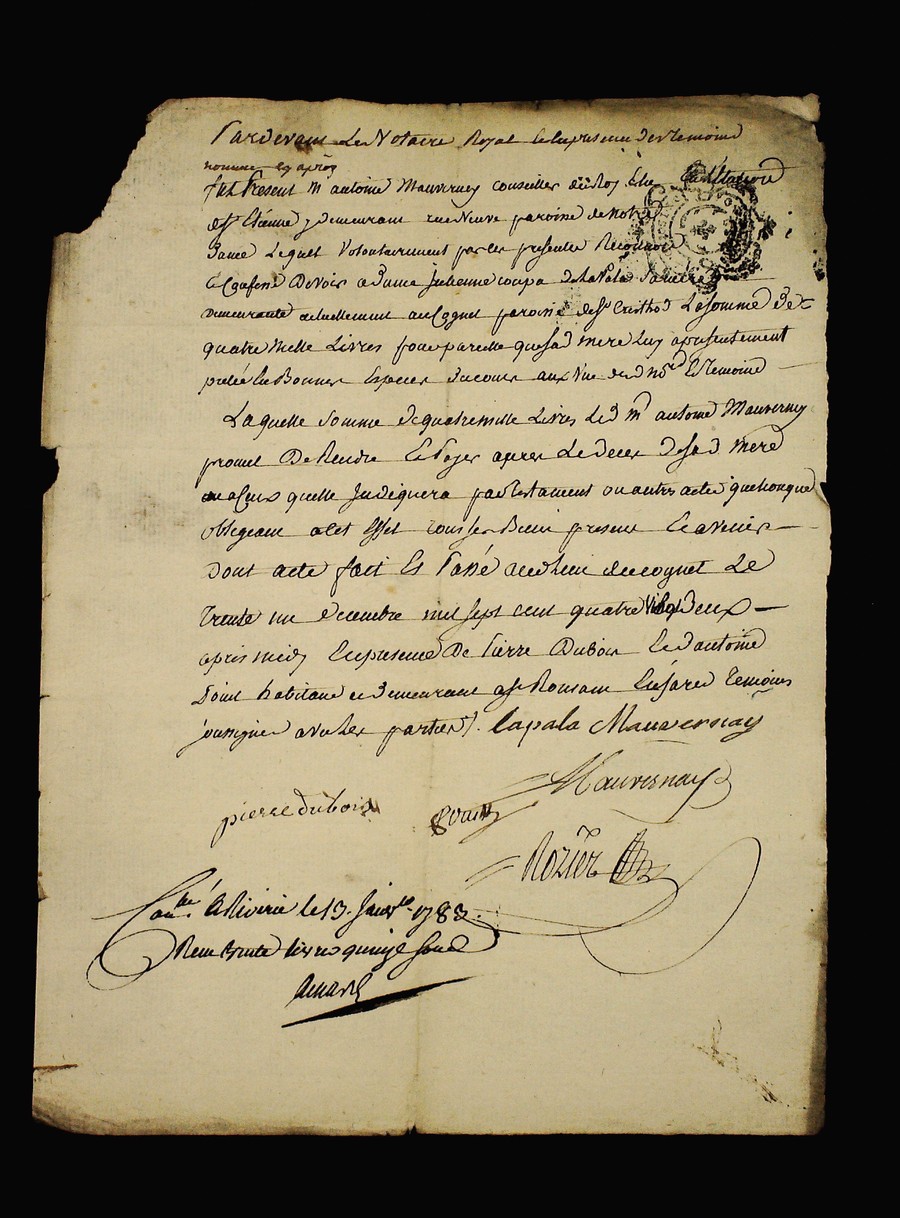 Pardevant Le Notaire Royal et en presence des temoins
nommes cy après
fut Present mr antoine Mauverney conseiller du Roy Elu En L'Election
de st Etienne y demeurant rue Neuve paroisse de notre
dame Lequel Volontairement par ces presentes Reconnoit
et Confesse Devoir a dame Julienne coupa De La Pala sa mere
demeurante actuellement au Cognet paroisse de st Cristhod La somme de
quatre Mille Livres pour pareille que sad mere Luy a presentement
pretée En Bonnes Especes du cours aux Vue de nd nore Et temoins
La quelle somme de quatre mille Livres Led mr antoine Mauverney
promet De Rendre Et Payer apres Le deces de sad mere
ou a ceux quelle Indiquera par testament ou autres acte quelconque
obligeant a cet effet tous ses Biens presens Et avenir
Dont acte fait Et Passé au lieu du cognet Le
trente un decembre mil sept cent quatre vingt deux
apres midy En presence De Pierre Dubois Et d'antoine
habitans et demeurant a st Romain temoins
soussignes avec les parties. Lapala Mauvernay
Mauvernay
pierre dubois
Rozier
Conllé A Riverie le 13. Janvier 1783.
Reçu trente livres quinze sous